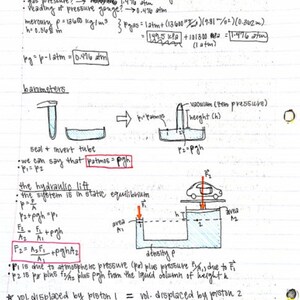 • reading of pressure gauge? → 0.476 atm
mercury ρ = 13600 kg/m³
h =
1.476 atm
pg = p - 1 atm = 0.476 atm
barometers
vacuum (zero pressure)
height (h)
p = patmos
p₂ = ρgh
seal + invert tube
• we can say that patmos = ρgh
• p₁ = p₂
the hydraulic lift
• the system is in static equilibrium
• p = F/A
• p₂ + ρgh = p₁
F₂/A₂ = F₁/A₁ + ρgh
F₂ = A₂F₁/A₁ + ρghA₂
F₁
F₂
area A₁
area A₂
h
density ρ
• p₁ is due to atmospheric pressure (p₀) plus pressure F₁/A₁ due to F₁
• p₂ is p₀ plus F₂/A₂ plus ρgh from the liquid column of height h
* vol. displaced by piston 1 = vol. displaced by piston 2